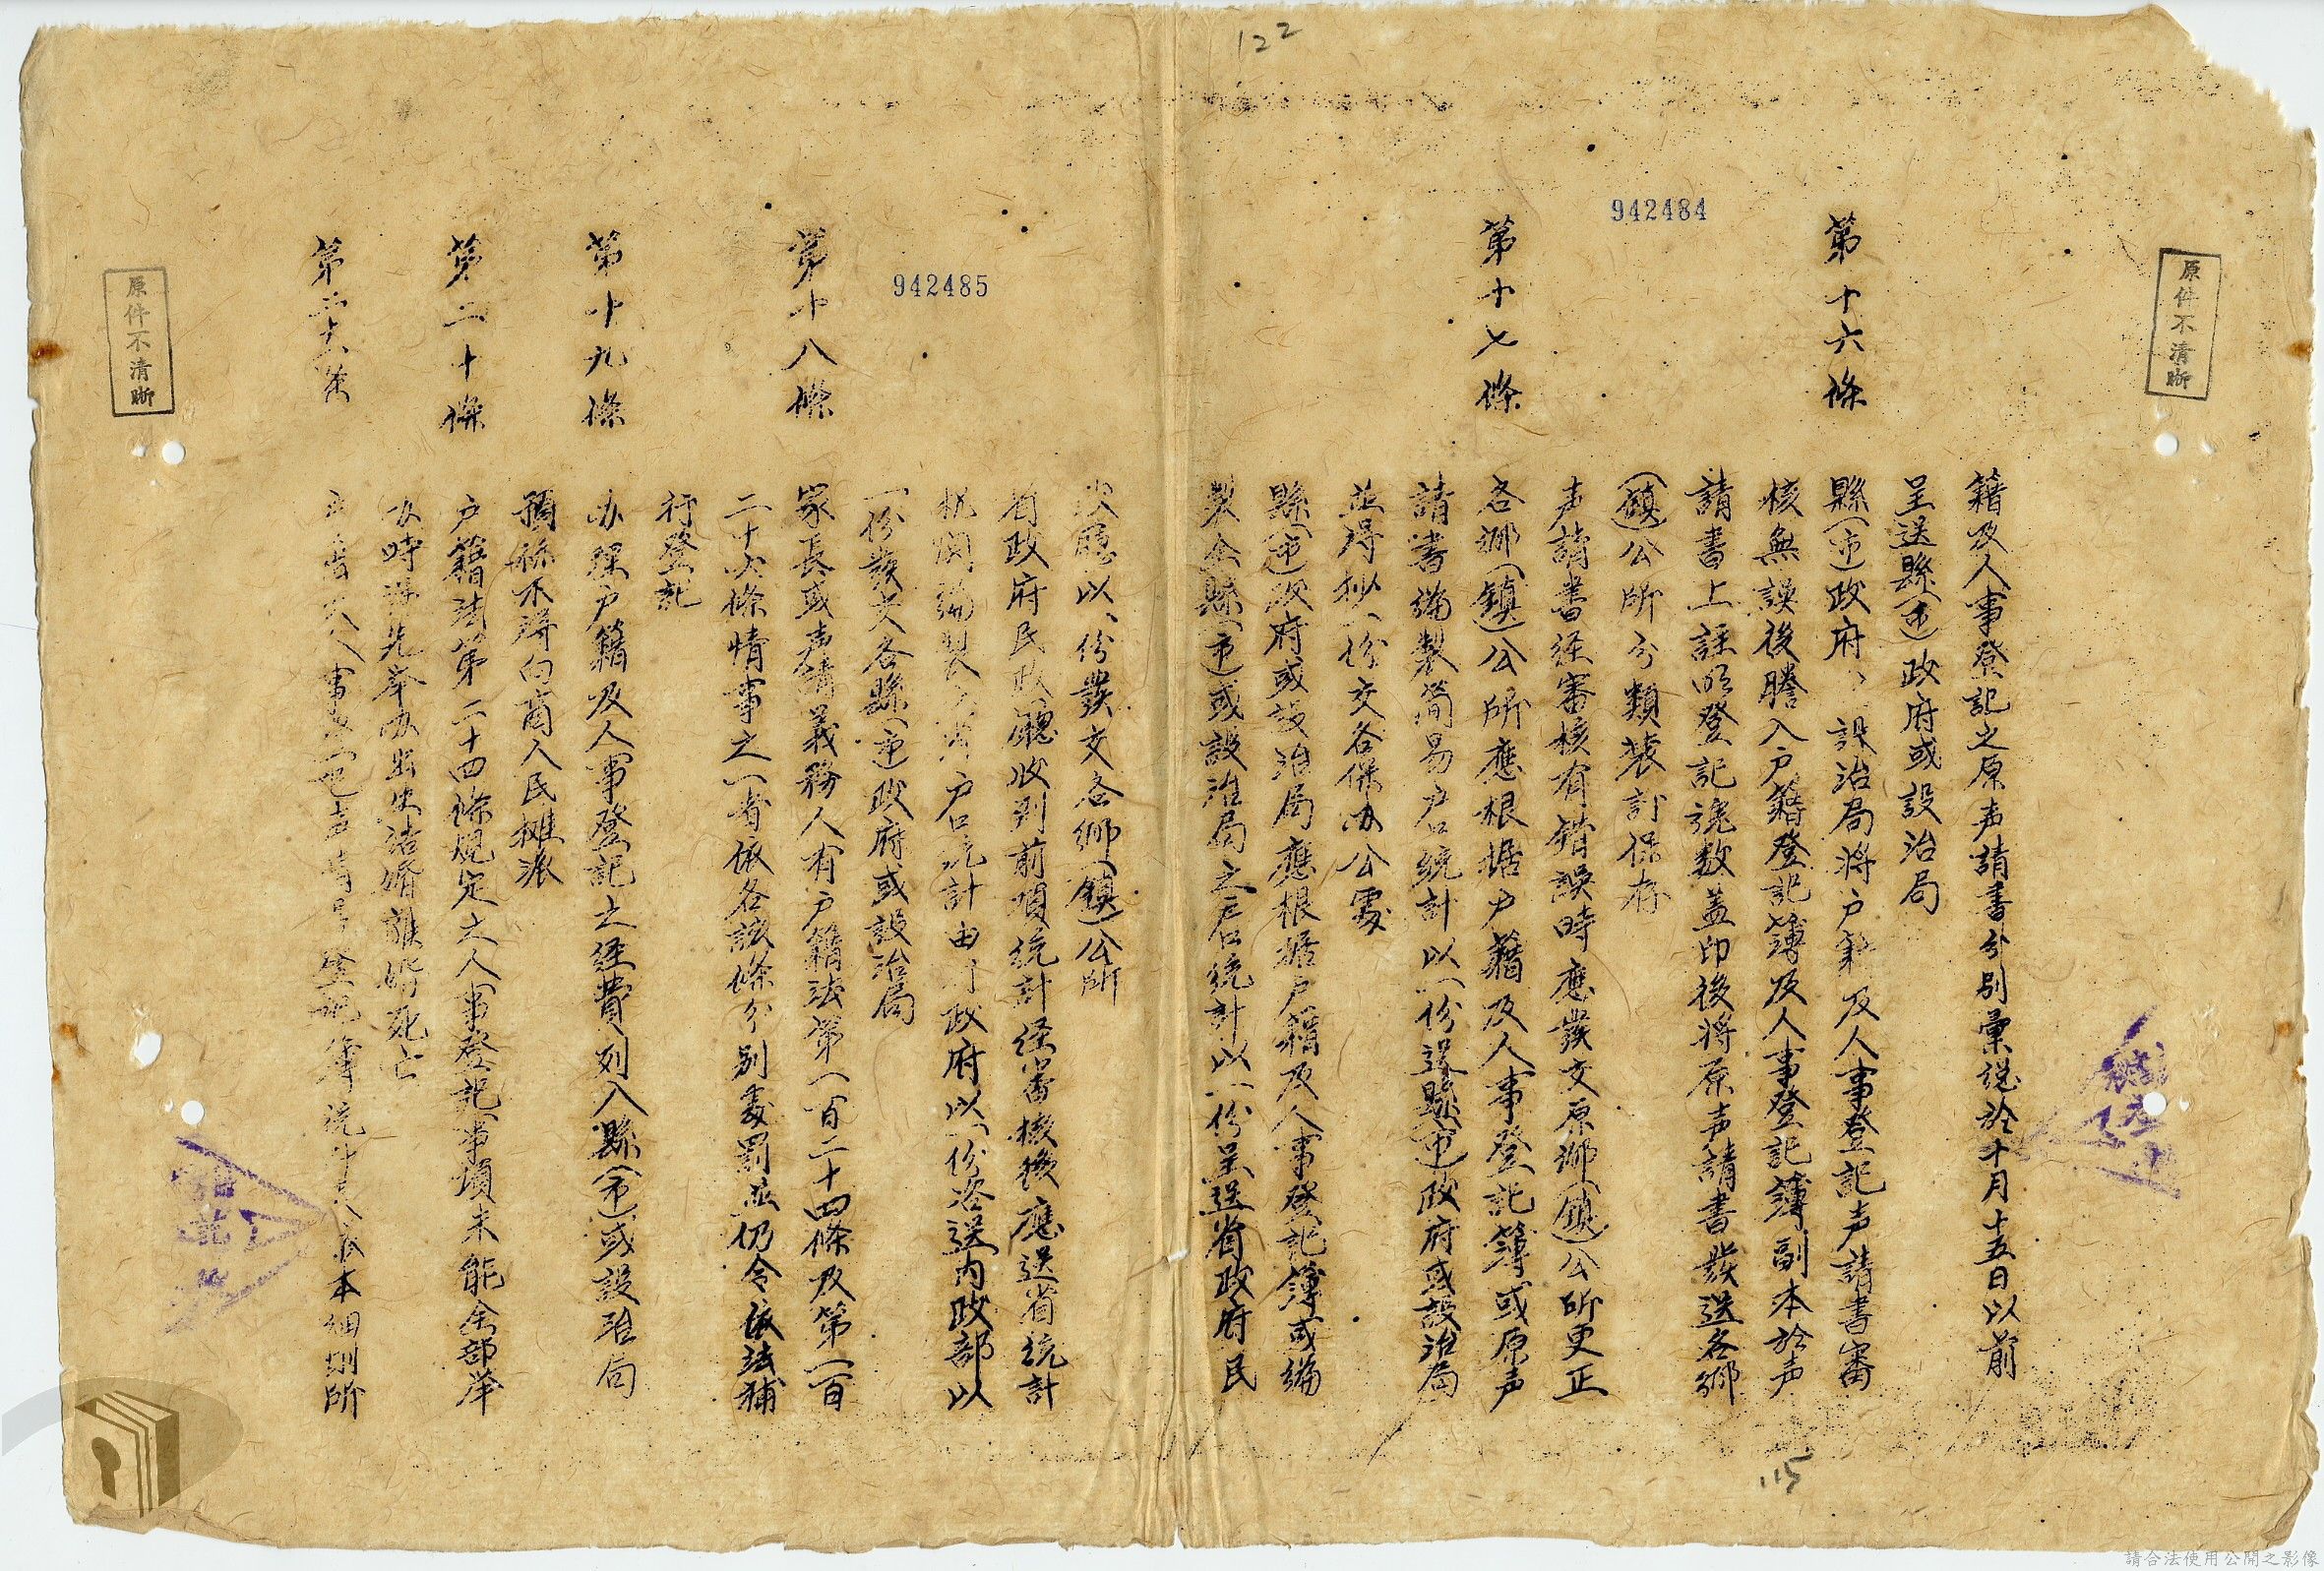 122
942484
原件不清晰
籍及人事登記之原声請書分別彙總於十月十五日以前
呈送縣(市)政府或設治局
第十六條 縣(市)政府 設治局將户籍及人事登記声請書審
核無誤後謄入户籍登記簿及人事登記簿副本於声
請書上註明登記號数蓋印後將原声請書發送各鄉
(鎮)公所分類裝訂保存
声請書經審核有錯誤時應發交原鄉(鎮)公所更正
第十七條 各鄉(鎮)公所應根据户籍及人事登記簿或原声
請書编製简易户口統計以一份送縣(市)政府或設治局
並得抄一份交各保办公處
縣(市)政府或設治局應根据户籍及人事登記簿或编
製全縣(市)或設治局之户口統計以一份呈送省政府民
115
942485
政廳以一份發交各鄉(鎮)公所
省政府民政廳收到前項統計經審核後應送省統計
机関编製 户口統計由 政府以一份咨送內政部以
一份發交各縣(市)政府或設治局
第十八條 家長或声請義務人有户籍法第一百二十四條及第一百
二十六條情事之一者依各該條分别處罰並仍令依法補
行登記
第十九條 办理户籍及人事登記之經費列入縣(市)或設治局
預祘不得向商人民摊派
第二十條 户籍法第二十四條規定之人事登記事項未能全部举
办時得先举办出生结婚離婚死亡
第二十 條 人事 声請 登記簿統計 本細則所
原件不清晰
請合法使用公開之影像